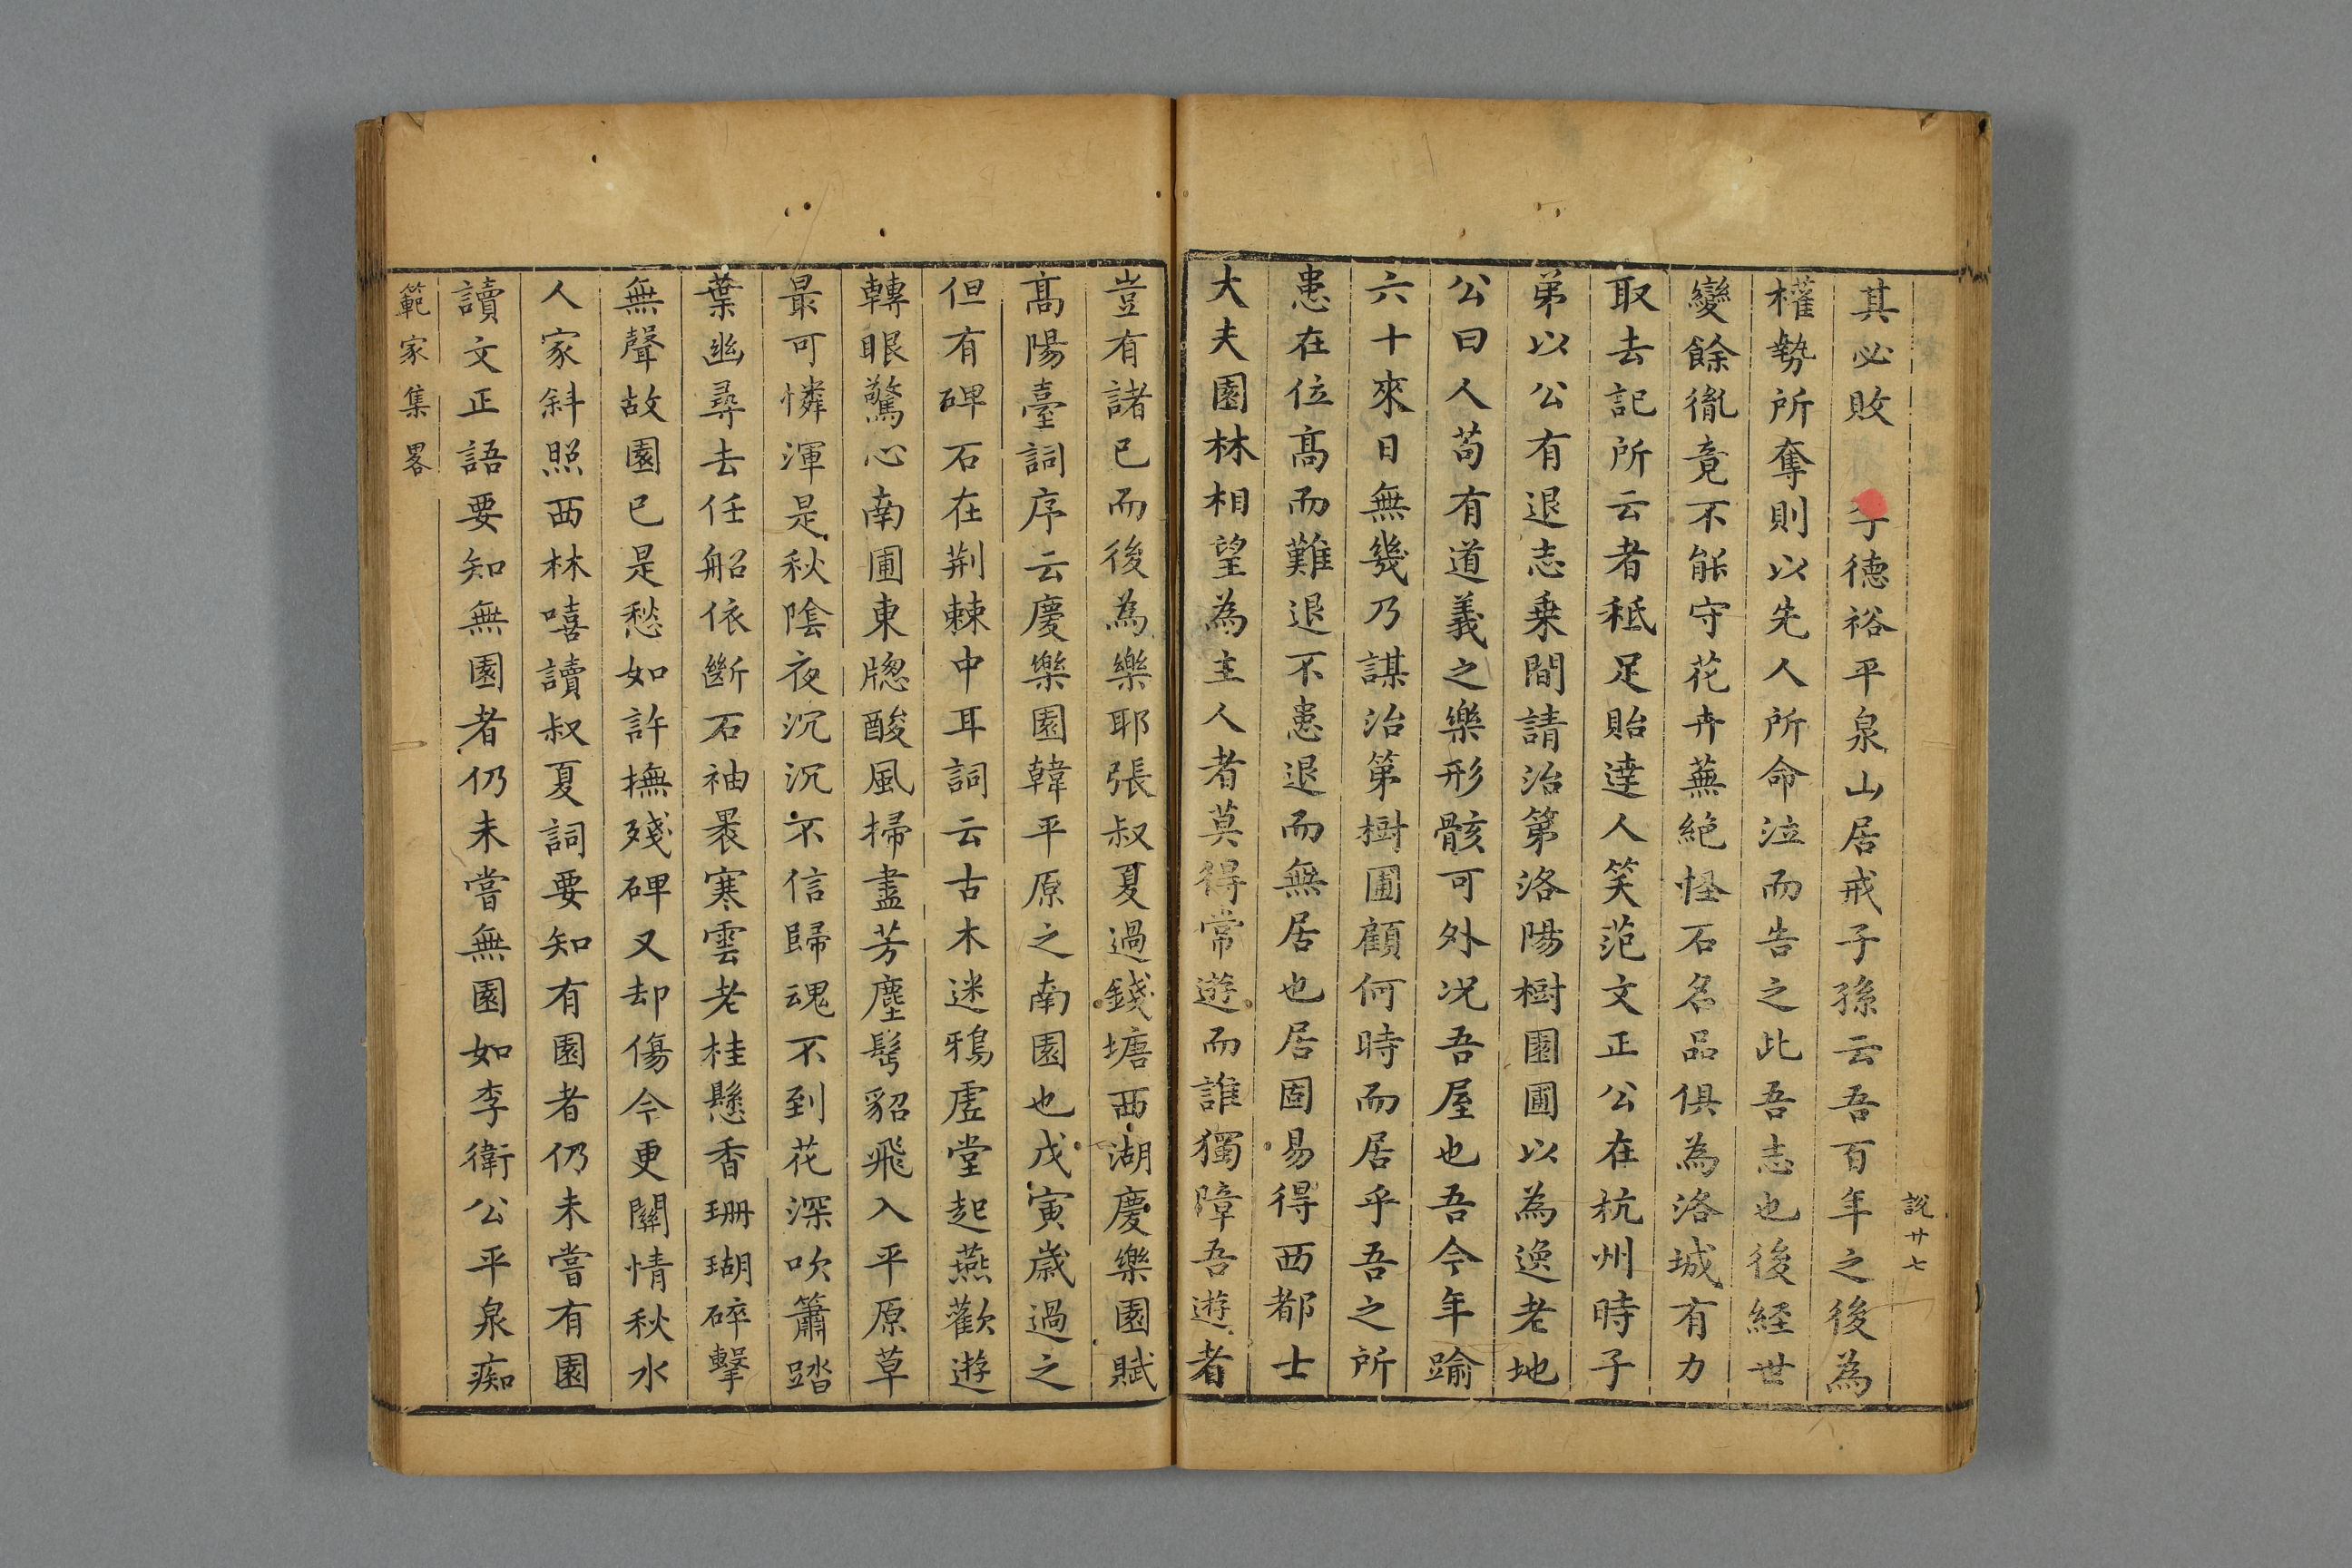 說廿七
其必敗　李德裕平泉山居戒子孫云吾百年之後為
權勢所奪則以先人所命泣而告之此吾志也後経世
變餘徹竟不能守花卉蕪絕怪石名品俱為洛城有力
取去記所云者秪足貽達人笑范文正公在杭州時子
弟以公有退志乗間請治第洛陽樹園圃以為逸老地
公曰人苟有道義之樂形骸可外況吾屋也吾今年踰
六十來日無幾乃謀治第樹圃顧何時而居乎吾之所
患在位高而難退不患退而無居也居固易得西都士
大夫園林相望為主人者莫得常遊而誰獨障吾遊者
豈有諸已而後為樂耶張叔夏過錢塘西湖慶樂園賦
高陽臺詞序云慶樂園韓平原之南園也戊寅歲過之
但有碑石在荆棘中耳詞云古木迷鴉虗堂起燕歡遊
轉眼驚心南圃東牎酸風掃盡芳塵髩貂飛入平原草
最可憐渾是秋陰夜沉沉不信歸魂不到花深吹簫踏
葉幽尋去任船依斷石袖褁寒雲老桂懸香珊瑚碎擊
無聲故園已是愁如許撫殘碑又却傷今更關情秋水
人家斜照西林嘻讀叔夏詞要知有園者仍未嘗有園
讀文正語要知無園者仍未嘗無園如李衛公平泉痴
範家集畧